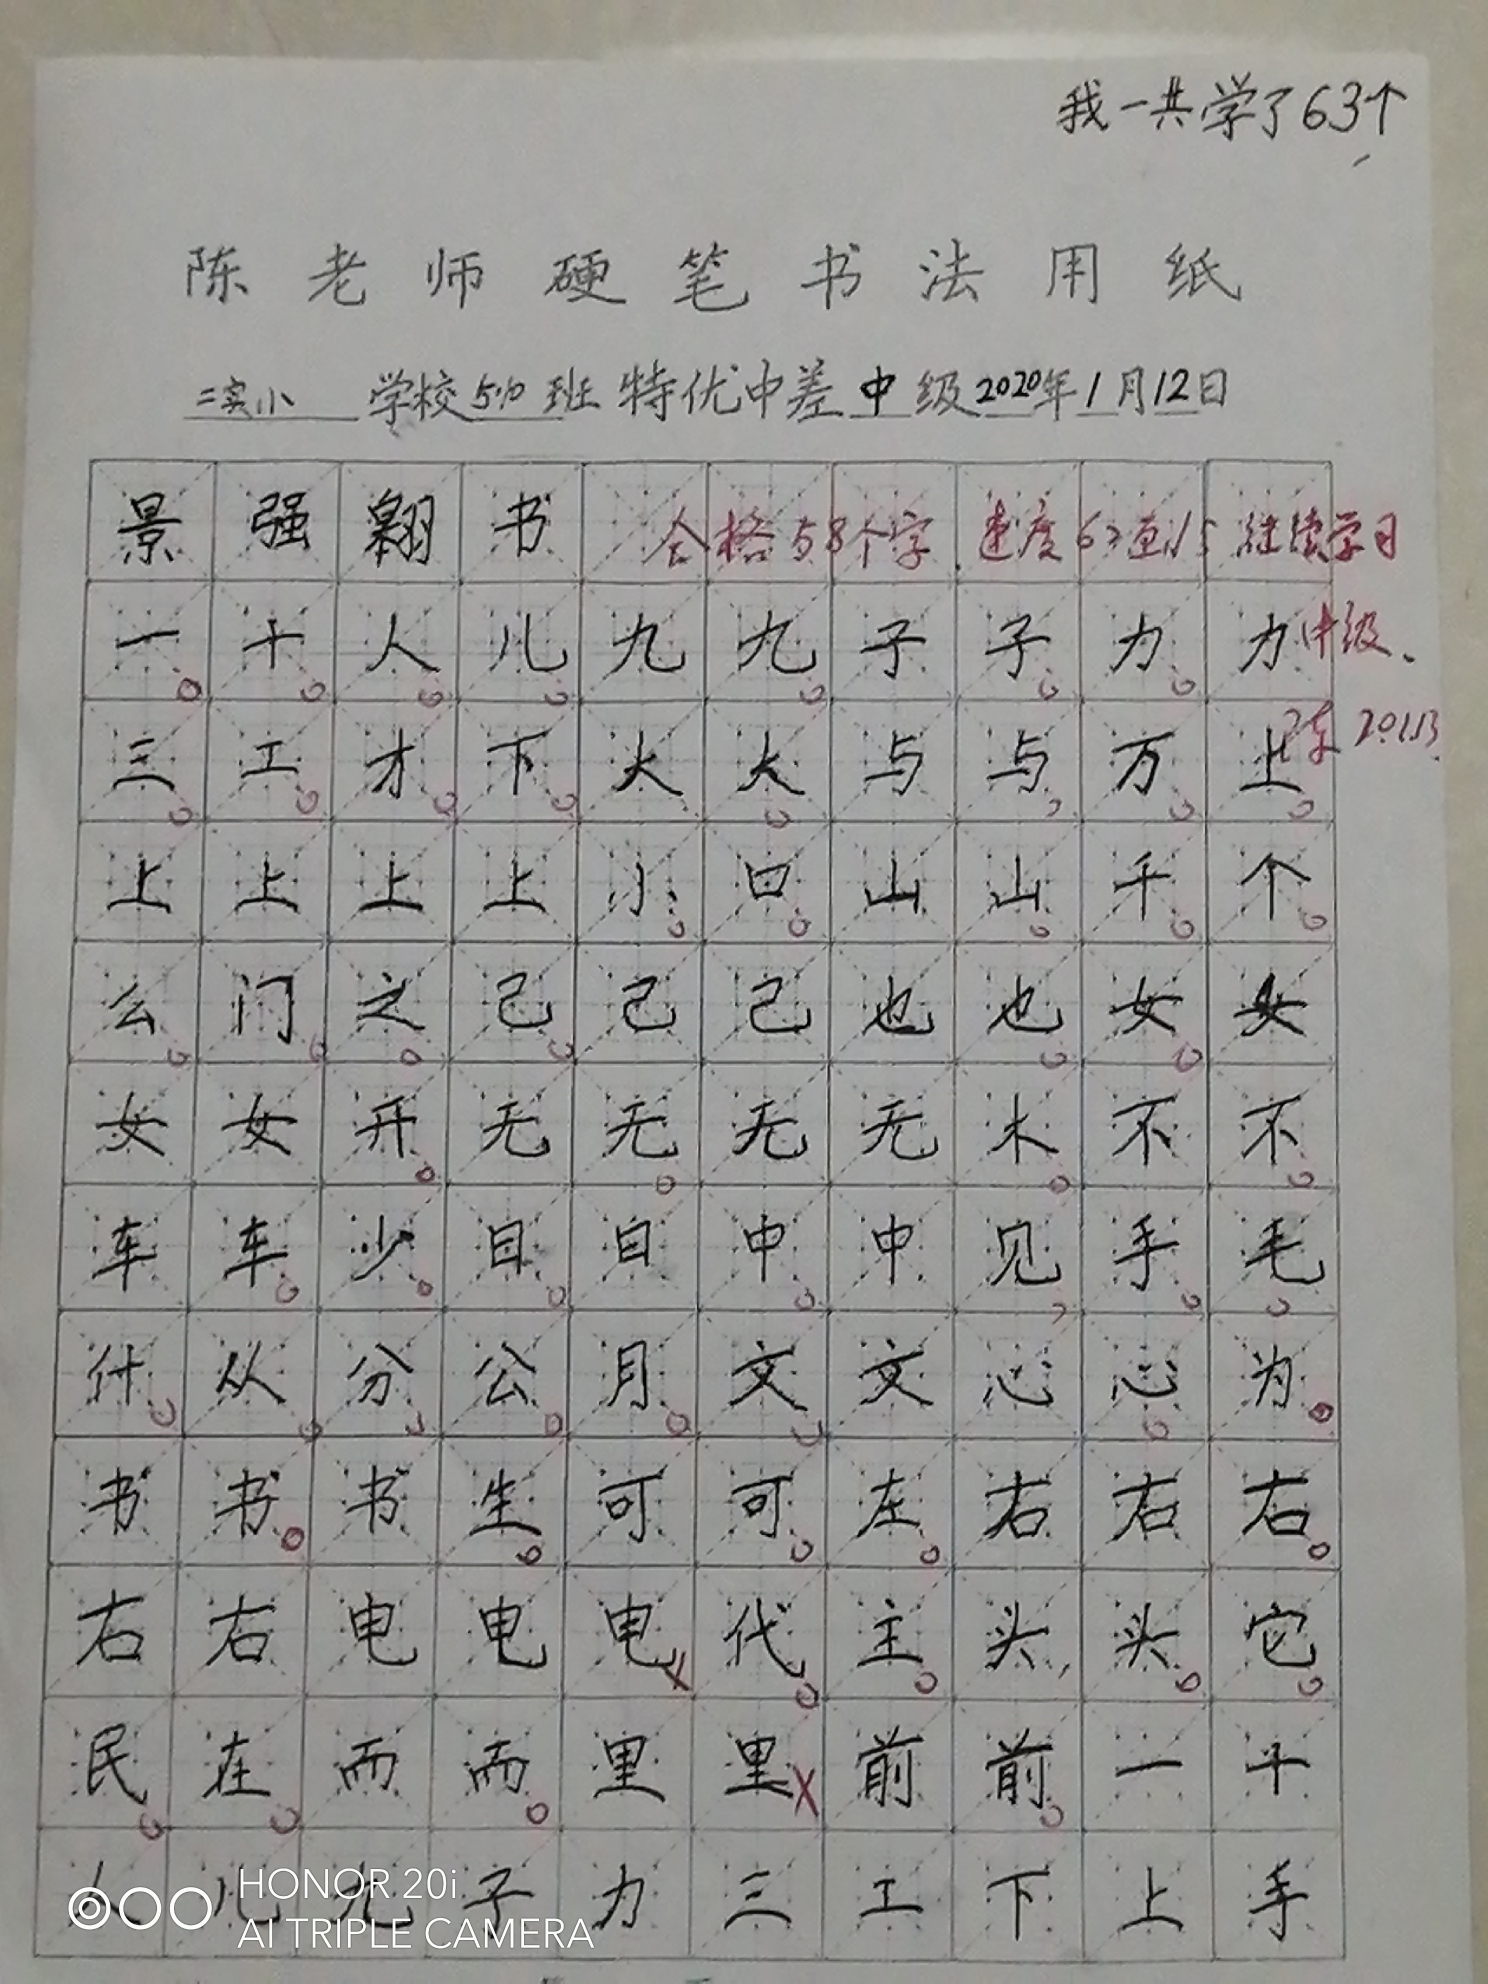 我一共学了63个
陈老师硬笔书法用纸
二实小 学校5.10班 特优中差 中 级2020年1月12日
景强翱书 合格58个字.速度63画/5 继续学习
一十人儿九九子子力力 中级、
三工才下大大与与万上 陈 20.1.13.
上上上上小口山山千个
么门之己己己也也女女
女女开无无无无木不不
车车少日日中中见手毛
什从分公月文文心心为
书书书生可可左右右右
右右电电电代主头头它
民在而而里里前前一十
人儿九子力三工下上手
HONOR 20i
AI TRIPLE CAMERA